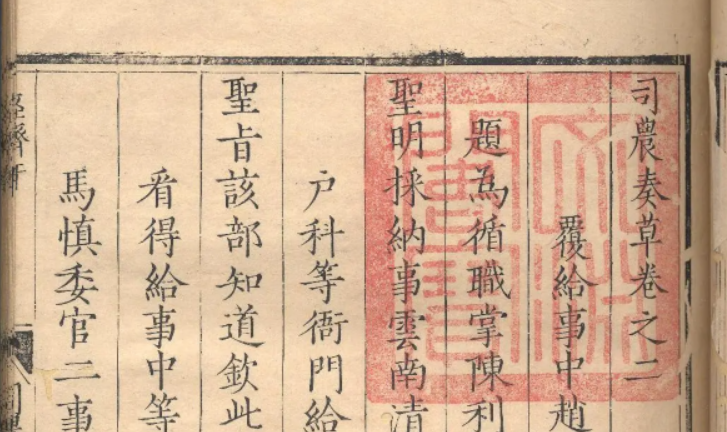 司農奏草卷之二
覆給事中趙
題為循職掌陳利
聖明採納事雲南清
户科等衙門給
聖旨該部知道欽此
看得給事中等
馬慎委官二事